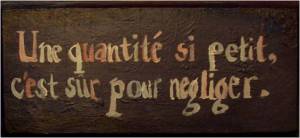 Une quantité si petit,
c'est sur pour negliger.